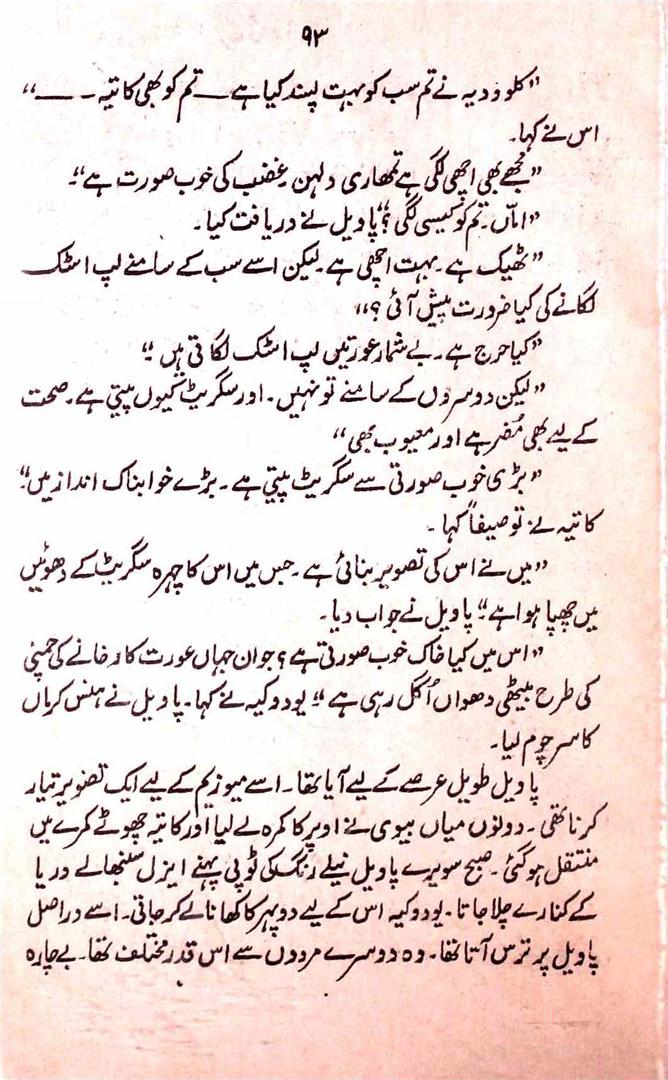 ۹۳
”کلوودیہ نے تم سب کو بہت پسند کیا ہے — تم کو بھی کاتیہ ۔ —“
اس نے کہا۔
”مجھے بھی اچھی لگی ہے تمھاری دلہن۔ غضب کی خوب صورت ہے“۔
”اماّں۔ تم کو کیسی لگی؟“ پاویل نے دریافت کیا۔
”ٹھیک ہے۔ بہت اچھی ہے۔ لیکن اسے سب کے سامنے لپ اسٹک
لگانے کی کیا ضرورت پیش آئی؟“
”کیا حرج ہے۔ بے شمار عورتیں لپ اسٹک لگاتی ہیں“۔
”لیکن دوسروں کے سامنے تو نہیں۔ اور سگریٹ کیوں پیتی ہے۔ صحت
کے لیے بھی مُضر ہے اور معیوب بھی“
”بڑی خوب صورتی سے سگریٹ پیتی ہے۔ بڑے خوابناک انداز میں“۔
کاتیہ نے توصیفاً کہا۔
”میں نے اس کی تصویر بنائی ہے۔ جس میں اس کا چہرہ سگریٹ کے دھوئیں
میں چھپا ہوا ہے“۔ پاویل نے جواب دیا۔
”اس میں کیا خاک خوب صورتی ہے؟ جوان جہاں عورت کارخانے کی چمنی
کی طرح بیٹھی دھواں اُگل رہی ہے“۔ یودوکیہ نے کہا۔ پاویل نے ہنس کر ماں
کا سر چوم لیا۔
پاویل طویل عرصے کے لیے آیا تھا۔ اسے میوزیم کے لیے ایک تصویر تیار
کرنا تھی۔ دونوں میاں بیوی نے اوپر کا کمرہ لے لیا اور کاتیہ چھوٹے کمرے میں
منتقل ہو گئی۔ صبح سویرے پاویل نیلے رنگ کی ٹوپی پہنے ایزل سنبھالے دریا
کے کنارے چلا جاتا۔ یودوکیہ اس کے لیے دوپہر کا کھانا لے کر جاتی۔ اسے دراصل
پاویل پر ترس آتا تھا۔ وہ دوسرے مردوں سے اس قدر مختلف تھا۔ بے چارہ